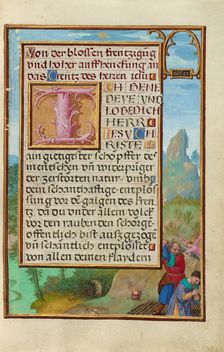 Von der blossen krentzigung
und hoher auffhenckung an
das Creutz des herren iesu
ICH BENE
DEYE VND
LOBE DICH
HERR
IESV CH
RISTE
ain guetigster schöpffer de
menschen vn widerpringer
der gefallen natur vmb
dein schamhafftige entplos
sung vor de galgen des kreu
tz, Da du vnder allem volck
vor den rauben den schörgen
offentlich bist aus gezogen
vn schentlich entplösset
von allen deinen klaydern